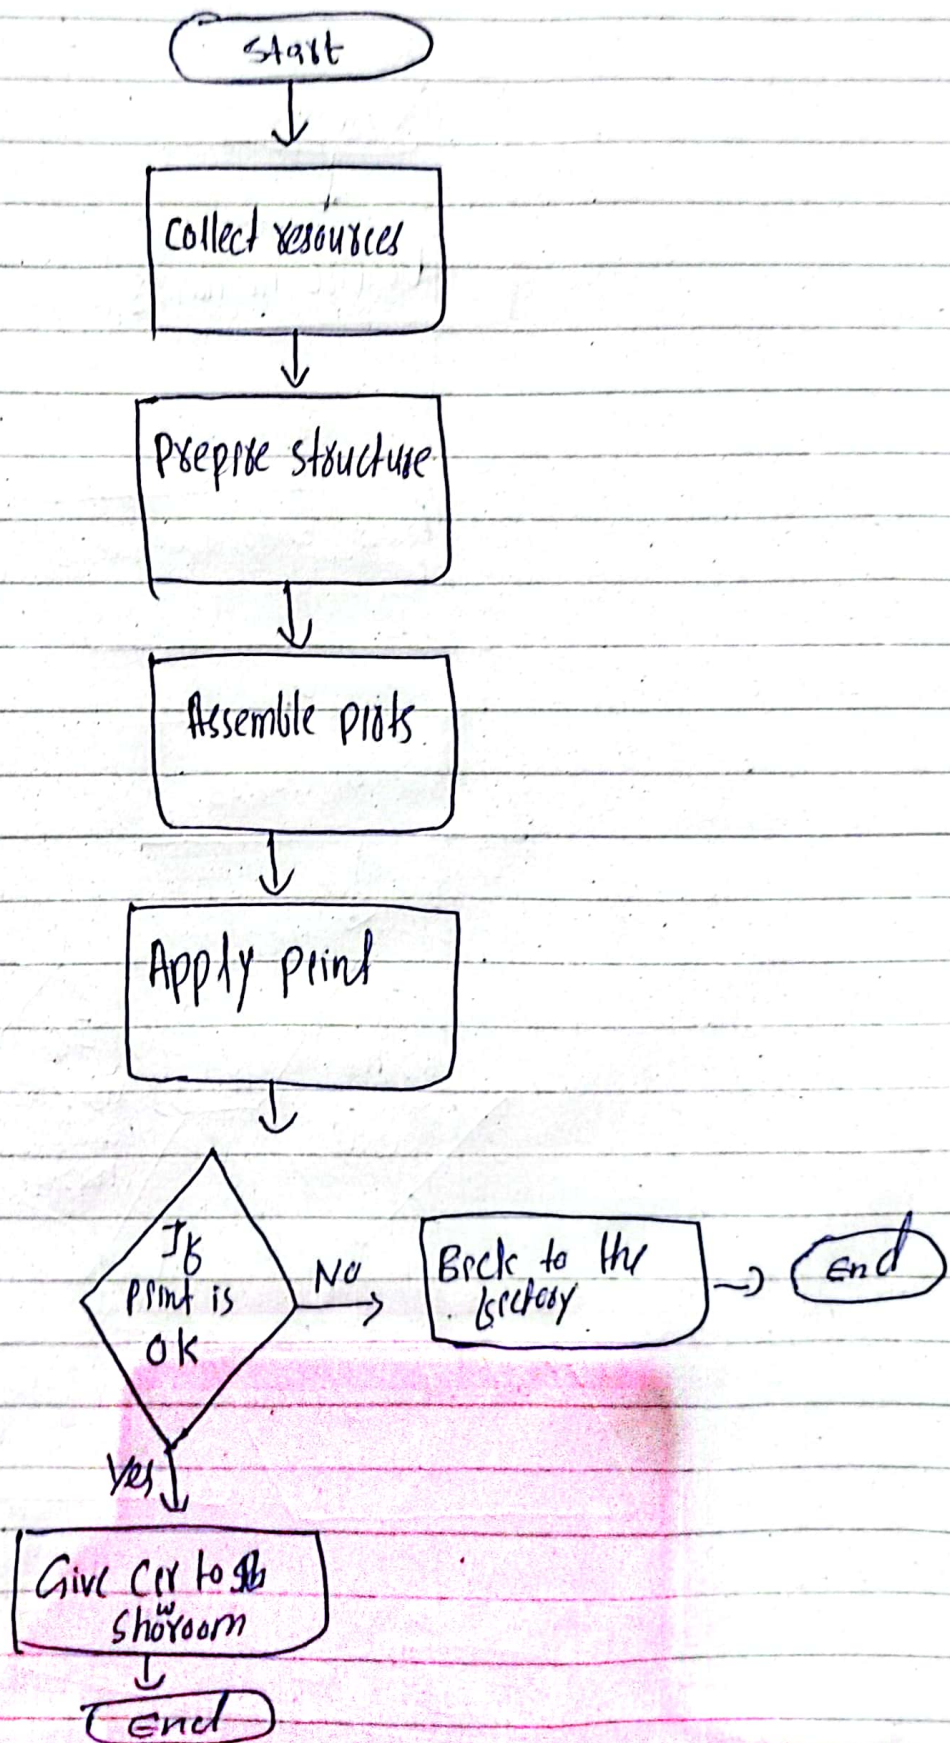 Start
Collect resources
Prepare structure
Assemble parts
Apply paint
If
paint is
OK
No
Back to the
factory
End
Yes
Give Car to
showroom
End